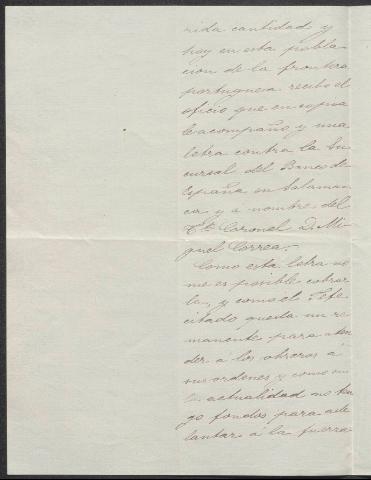 rida cantidad y
hoy en esta pobla
cion de la frontera
portuguesa recibo el
oficio que en copia
le acompaño y una
letra contra la Su
cursal del Banco de
España en Salaman
ca y a nombre del
Tte. Coronel D. Mi
guel Correa.-
Como esta letra no
me es posible cobrar
la, y como el Jefe
citado queda un re
manente para aten
der á los obreros á
sus ordenes y como en
la actualidad no ten
go fondos para ade
lantar á la fuerza